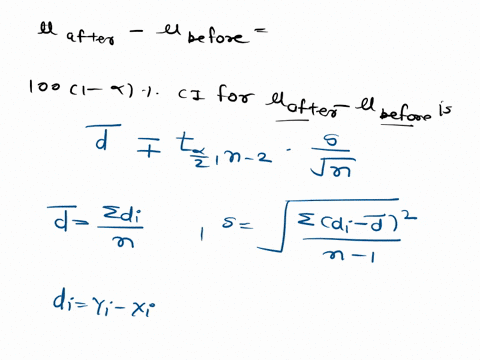 μ after - μ before =
100 (1-α) %. CI for μ after - μ before is
d̅ ∓ t α/2, n-2 · s/√n
d̅ = Σdi/n , s = √(Σ(di - d̅)²/(n-1))
di = Yi - Xi